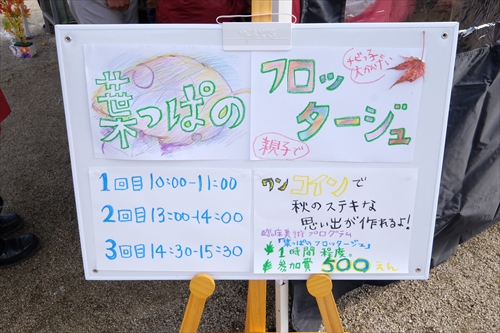 葉っぱの
フロッ
タージュ
チビッ子
大かんげい
親子で
1回目 10:00-11:00
2回目 13:00-14:00
3回目 14:30-15:30
ワンコインで
秋のステキな
思い出が作れるよ!
臨床美術プログラム
「葉っぱのフロッタージュ」
1時間程度。
参加費 500えん